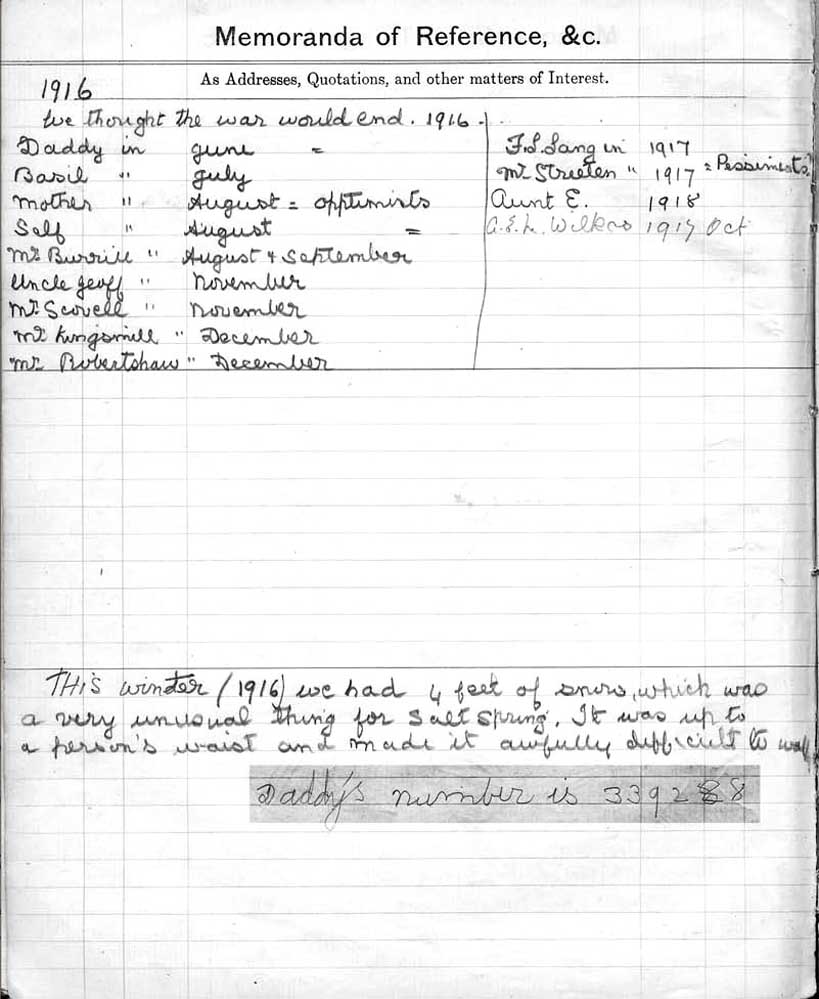 Memoranda of Reference, &c.
As Addresses, Quotations, and other matters of Interest.
1916
We thought the war would end. 1916.
Daddy in June =
Basil " July
Mother " August = opptimists
Self " August =
Mr. Burrill " August & September
Uncle Geoff " November
Mr. Scovell " November
Mr. Kingsmill " December
Mr. Robertshaw " December
F.S. Lang in 1917
Mr. Streeten " 1917 = Pessimests?
Aunt E. 1918
1917 Oct
THiS winter (1916) we had 4 feet of snow, which was
a very unusual thing for Salt Spring. It was up to
a person's waist and made it awfully difficult to walk
Daddy's number is 339288